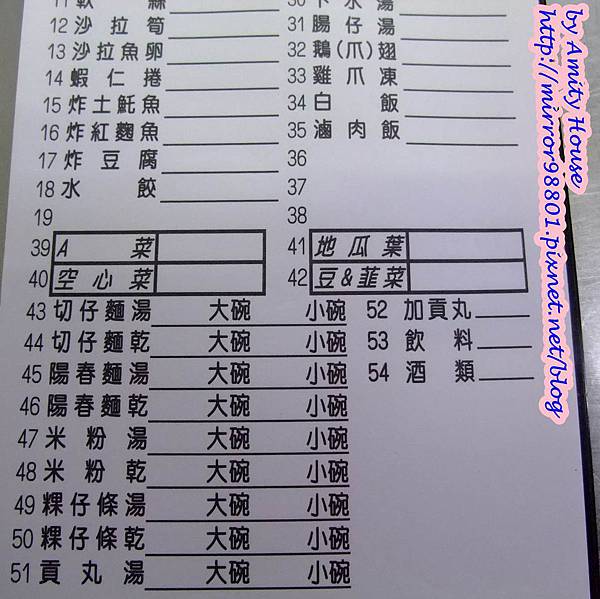 12 沙拉筍
13 沙拉魚卵
14 蝦仁捲
15 炸土魠魚
16 炸紅麴魚
17 炸豆腐
18 水餃
19
31 腸仔湯
32 鵝(爪)翅
33 雞爪凍
34 白飯
35 滷肉飯
36
37
38
39 A菜
40 空心菜
41 地瓜葉
42 豆&韮菜
43 切仔麵湯 大碗 小碗
44 切仔麵乾 大碗 小碗
45 陽春麵湯 大碗 小碗
46 陽春麵乾 大碗 小碗
47 米粉湯 大碗 小碗
48 米粉乾 大碗 小碗
49 粿仔條湯 大碗 小碗
50 粿仔條乾 大碗 小碗
51 貢丸湯 大碗 小碗
52 加貢丸
53 飲料
54 酒類
by Amity House
http://mirror98801.pixnet.net/blog